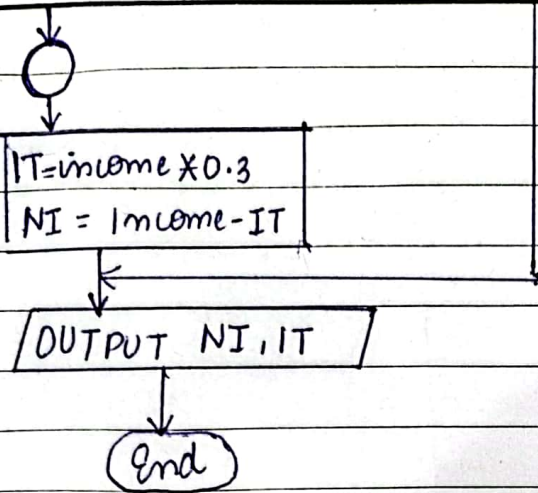 IT=income *0.3
NI = Income-IT
OUTPUT NI, IT
End